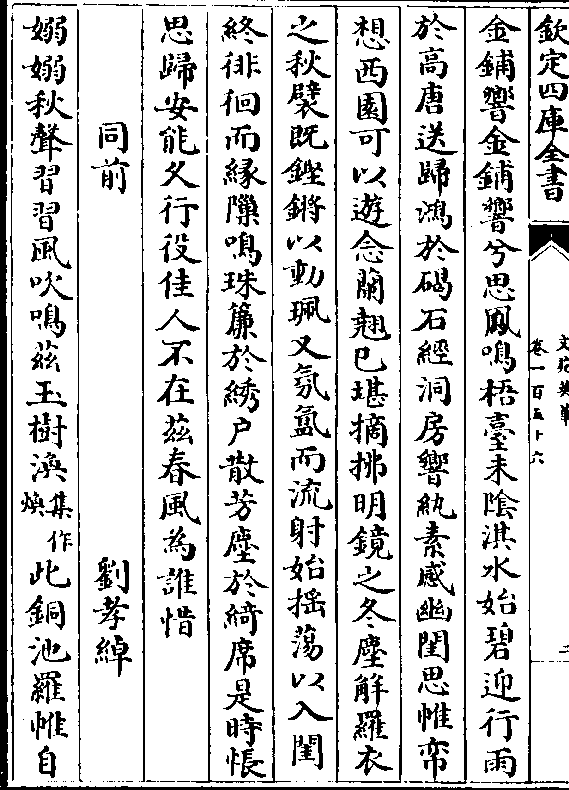 欽定四庫全書
文苑英華
卷一百五十六
二
金鋪響金鋪響兮思鳳鳴梧臺未陰淇水始碧迎行雨
於高唐送歸鴻於碣石經洞房響紈素感幽閨思帷帟
想西園可以遊念蘭翹已堪摘拂明鏡之冬塵解羅衣
之秋襞既鏗鏘以動珮又氛氳而流射始揺蕩以入閨
終徘徊而縁隟鳴珠簾於綉户散芳塵於綺席是時悵
思歸安能久行役佳人不在兹春風為誰惜
同前　劉孝綽
嫋嫋秋聲習習風吹鳴兹玉樹渙集作煥此銅池羅帷自